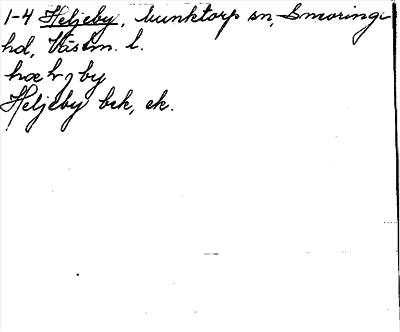 1-4 Heljeby, Munktorp sn, Snevringe
hd, Västm. l.
hæ lr̥ by
Heljeby bek, ek.